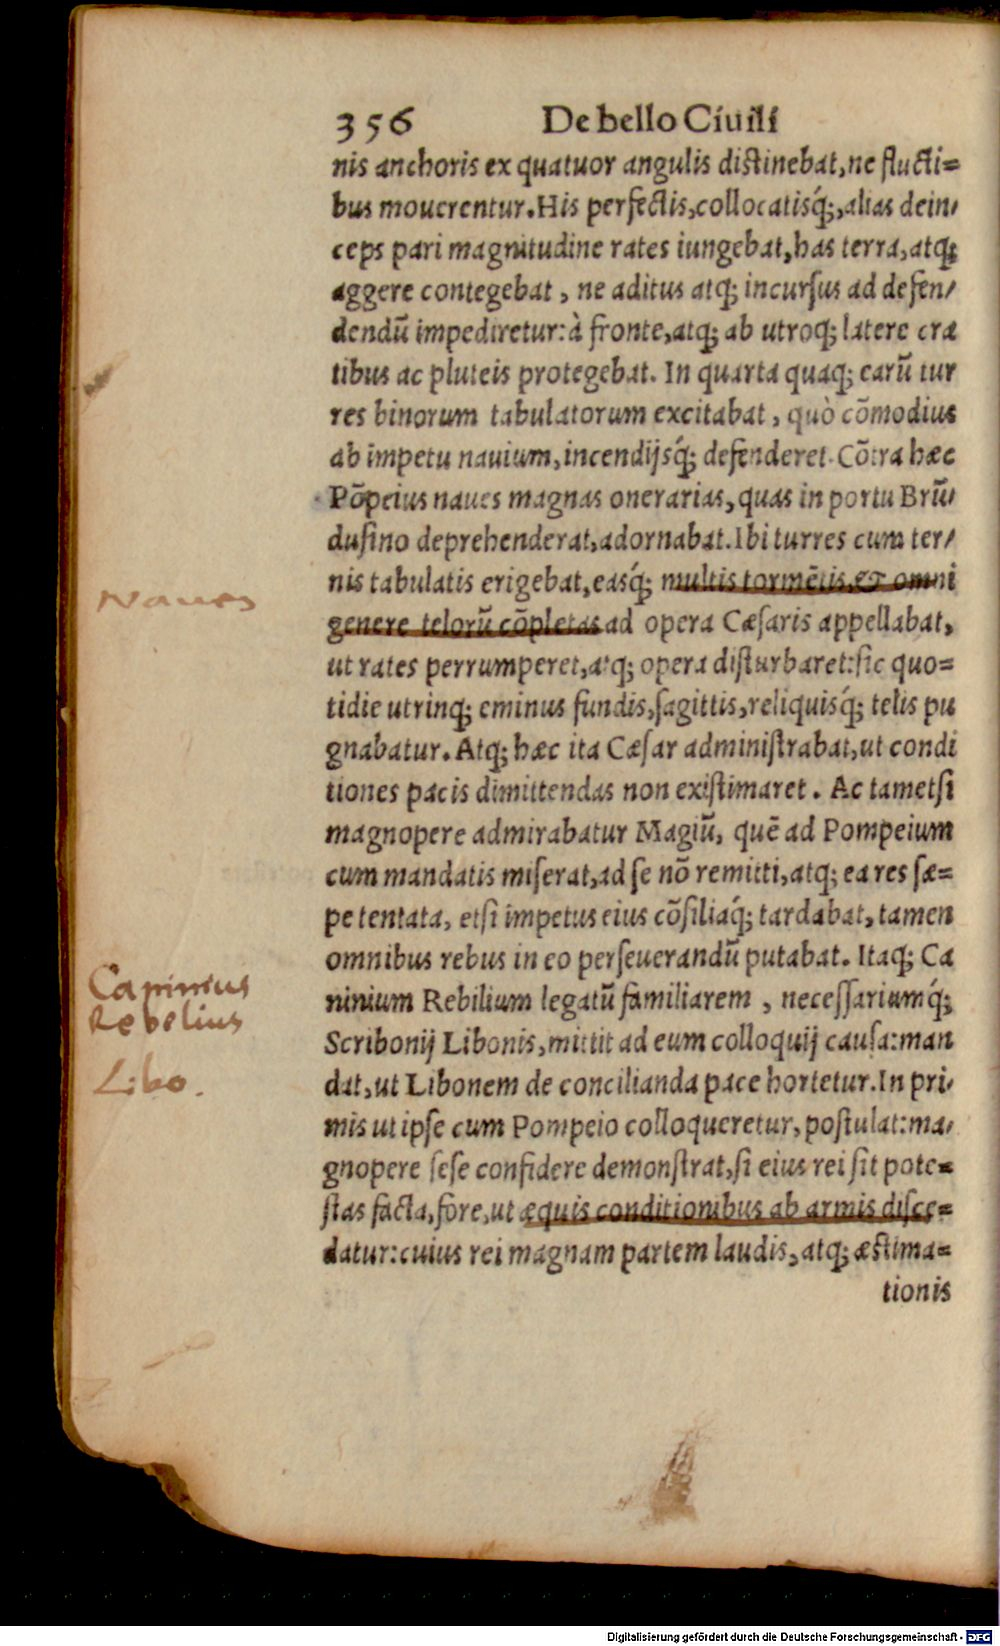 356 De bello Ciuili
nis anchoris ex quatuor angulis distinebat, ne flucti=
bus mouerentur. His perfectis, collocatisq́;, alias dein/
ceps pari magnitudine rates iungebat, has terra, atq;
aggere contegebat, ne aditus atq; incursus ad defen/
dendū impediretur: à fronte, atq; ab utroq; latere cra
tibus ac pluteis protegebat. In quarta quaq; earū tur
res binorum tabulatorum excitabat, quò cōmodius
ab impetu nauium, incendijsq́; defenderet. Cōtra hæc
Pōpeius naues magnas onerarias, quas in portu Brū/
dusino deprehenderat, adornabat. Ibi turres cum ter/
nis tabulatis erigebat, easq́; multis tormētis, et omni
Naues
genere telorū cōpletas ad opera Cæsaris appellabat,
ut rates perrumperet, atq; opera disturbaret: sic quo=
tidie utrinq; eminus fundis, sagittis, reliquisq́; telis pu
gnabatur. Atq; hæc ita Cæsar administrabat, ut condi
tiones pacis dimittendas non existimaret. Ac tametsi
magnopere admirabatur Magiū, quē ad Pompeium
cum mandatis miserat, ad se nō remitti, atq; ea res sæ=
pe tentata, etsi impetus eius cōsiliaq́; tardabat, tamen
omnibus rebus in eo perseuerandū putabat. Itaq; Ca
Caninius
ninium Rebilium legatū familiarem, necessariumq́;
Rebelius
Scribonij Libonis, mittit ad eum colloquij causa: man
Libo.
dat, ut Libonem de concilianda pace hortetur. In pri/
mis ut ipse cum Pompeio colloqueretur, postulat: ma/
gnopere sese confidere demonstrat, si eius rei sit pote=
stas facta, fore, ut æquis conditionibus ab armis disce=
datur: cuius rei magnam partem laudis, atq; æstima=
tionis
Digitalisierung gefördert durch die Deutsche Forschungsgemeinschaft - DFG